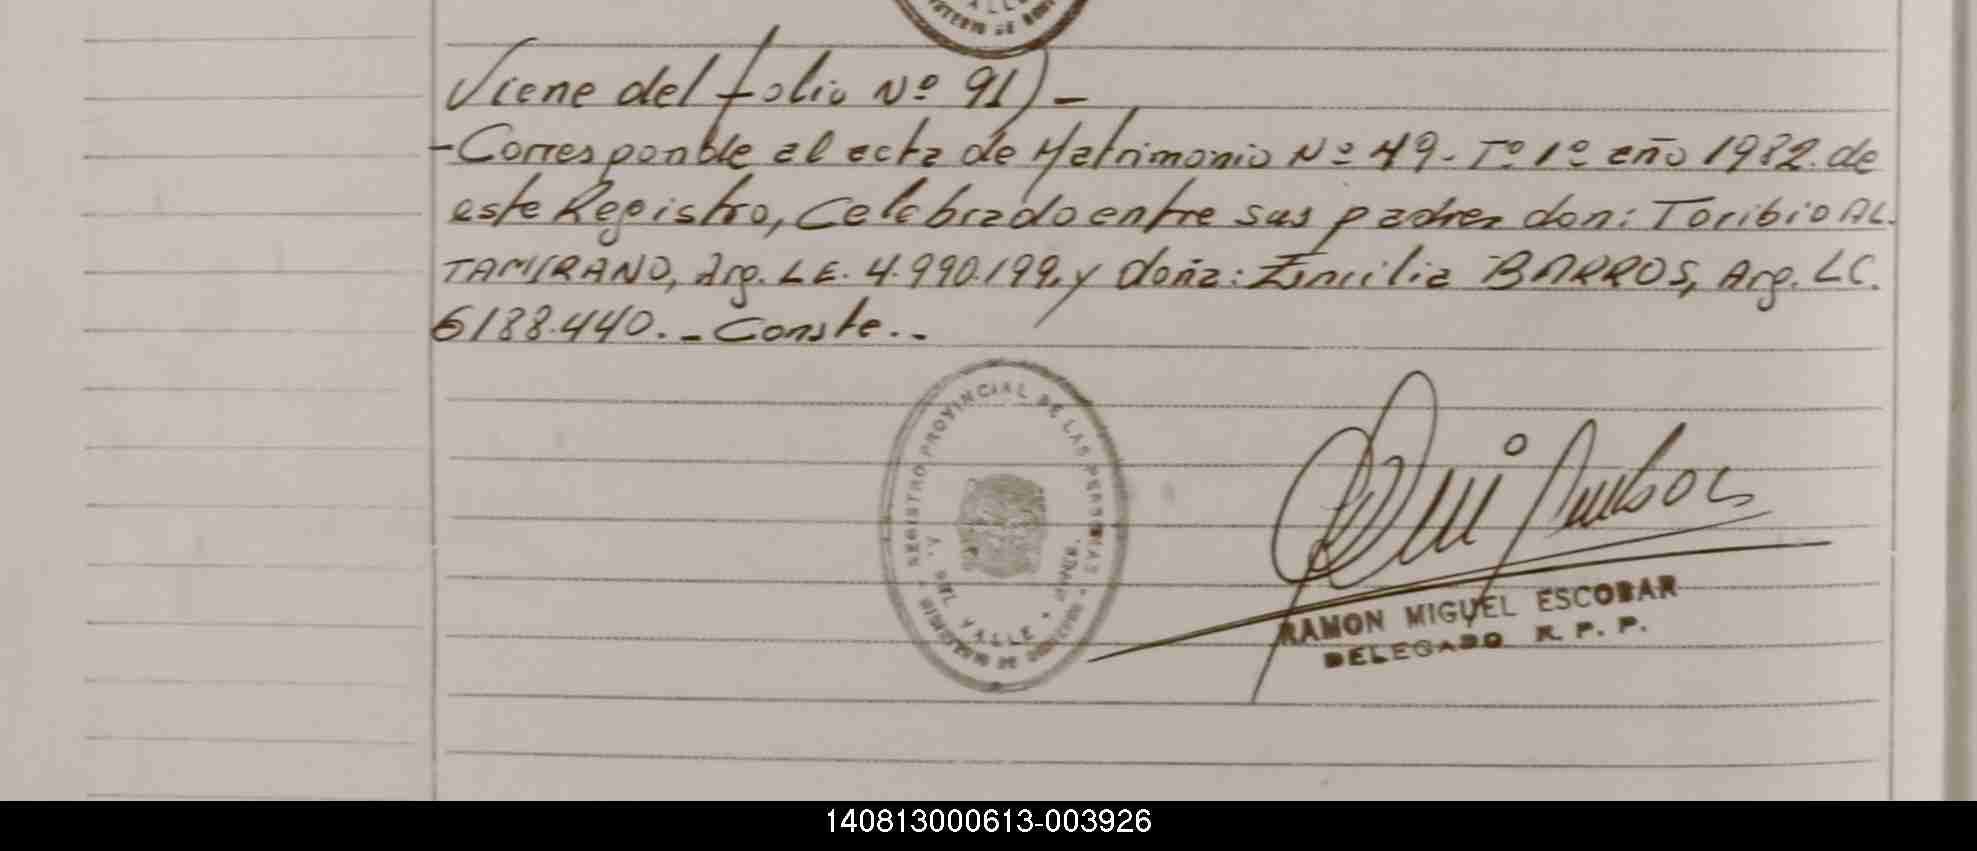 Viene del folio Nº 91) -
- Corresponde al acta de Matrimonio Nº 49. Tº 1º año 1982. de
este Registro, Celebrado entre sus padres don: Toribio AL.
TAMIRANO, Arg. L E. 4.990.199, y doña: BARROS, Arg. L C.
6188.440. - Conste. . -
REGISTRO PROVINCIAL DE LAS PERSONAS
VALLE
RAMON MIGUEL ESCOBAR
DELEGADO R. P. P.
140813000613-003926